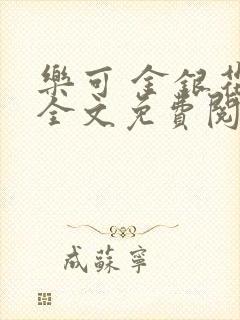 樂可 金銀花
全文免費閱
成蘇寧